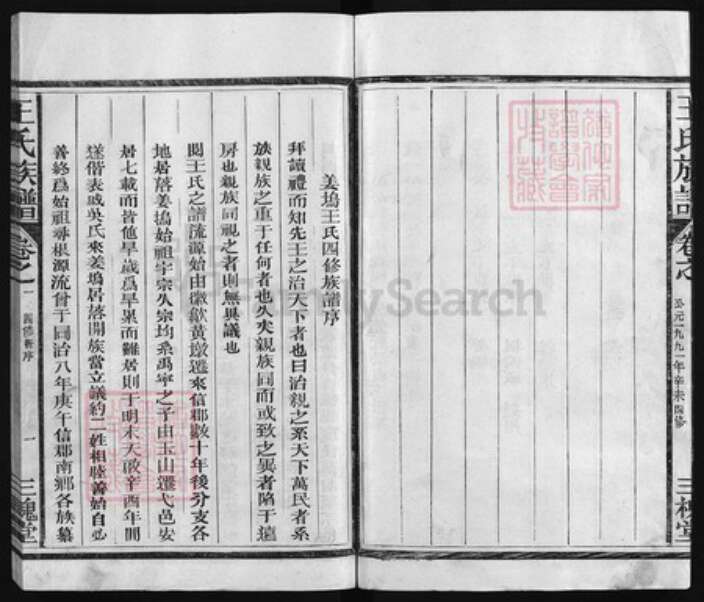 王氏族譜
卷之
公元一九九一年辛未四修
三槐堂
姜塢王氏四修族譜序
拜讀禮而知先王之治天下者也曰治親之系天下萬民者系
族親族之重于任何者也久夫親族同而或致之異者陷于遠
房也親族同視之者則無異議也
閱王氏之譜流源始由徽歙黃墩遷來信郡數十年後分支各
地居落姜塢始祖字宗久宗均系禹寧之子由玉山遷弋邑安
居七載而昔他旱歲爲旱累而難居則于明末天啟辛酉年間
遂偕表戚吳氏來姜塢居落開族當立議約二姓相睦善始自必
善終爲始祖尋根源流曾于同治八年庚午信郡南鄉各族纂
王氏族譜
卷之一
四修新序
一
三槐堂
FamilySearch